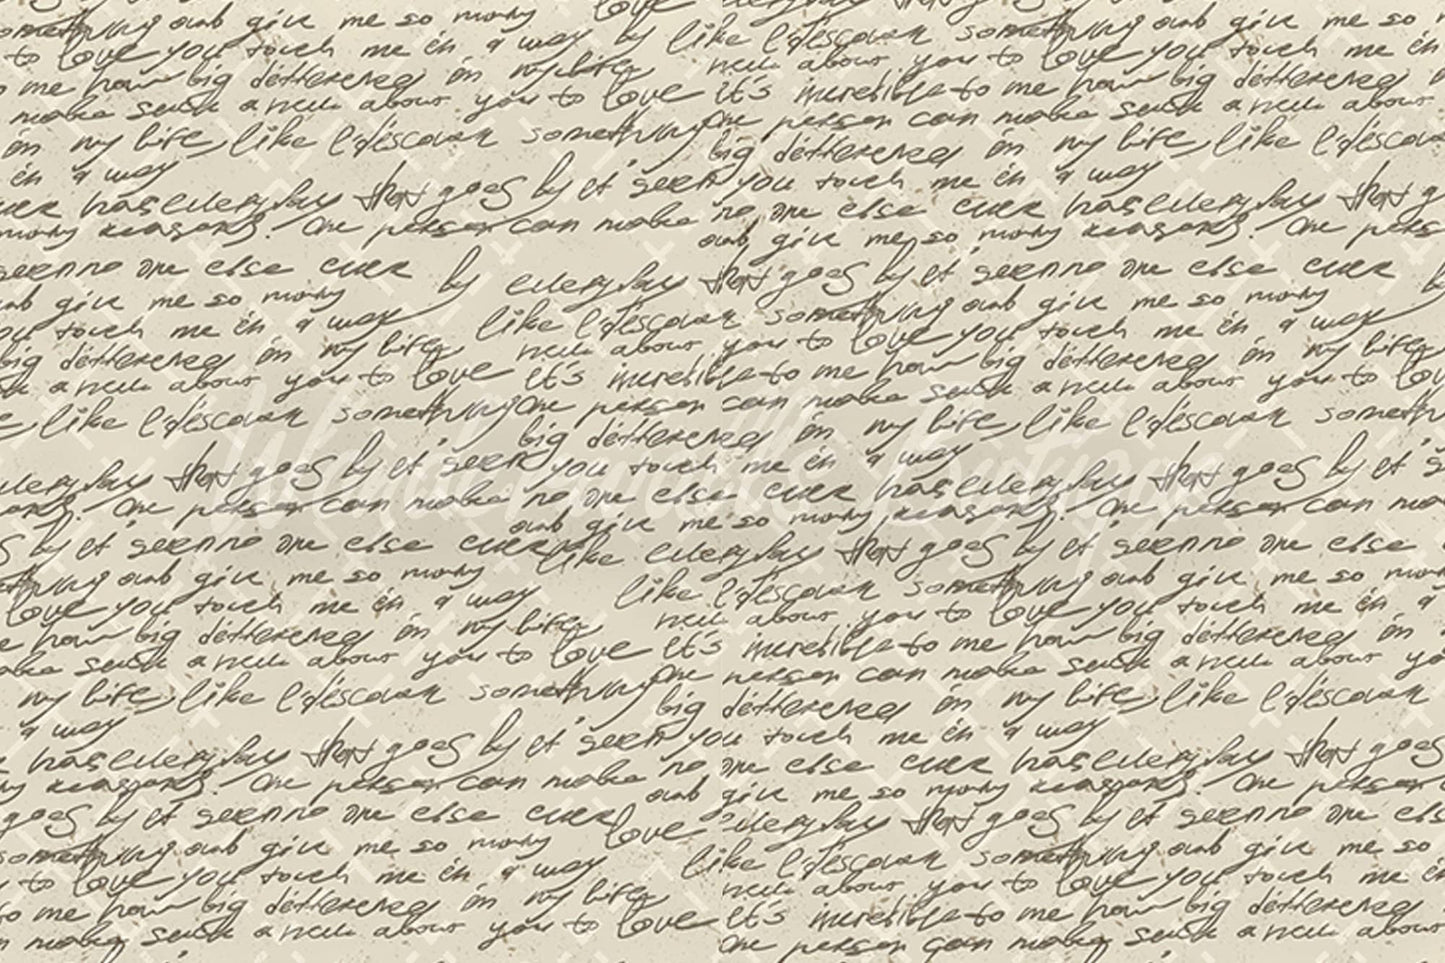 love everyday that goes
something and give me so many by like I discover something and give me so
to love you touch me in a way new about you to love you touch me in
to me how big difference in my life it's incredible to me how big difference
make such a new about you to love One person can make such a new about
in my life, like I discover something big difference in my life, like I discover
in a way you touch me in a way
ever has everyday that goes by it seem no one else ever has everyday that g
many reasons. One person can make and give me so many reasons. One pers
seem no one else ever by everyday that goes by it seem no one else ever b
and give me so many like I discover something and give me so many
you touch me in a way new about you to love you touch me in a way
big difference in my life it's incredible to me how big difference in my life
a new about you to love One person can make such a new about you to lov
like I discover something big difference in my life, like I discover someth
everyday that goes by it seem you touch me in a way everyday that goes by it s
One person can make no one else ever has reasons. One person can ma
and give me so many
s by it seem no one else ever like everyday that goes by it seem no one else
and give me so many like I discover something and give me so man
love you touch me in a way new about you to love you touch me in a
how big difference in my life it's incredible to me how big difference in
make such a new about you to love One person can make such a new about yo
my life, like I discover something big difference in my life, like I discover
a way you touch me in a way
has everyday that goes by it seem no one else ever has everyday that goes
reasons. One person can make and give me so many reasons. One person
goes by it seem no one else ever love everyday that goes by it seem no one els
something and give me so many like I discover something and give me so
to love you touch me in a way new about you to love you touch me in
to me how big difference in my life it's incredible to me how big difference
make such a new about you to love One person can make such a new about